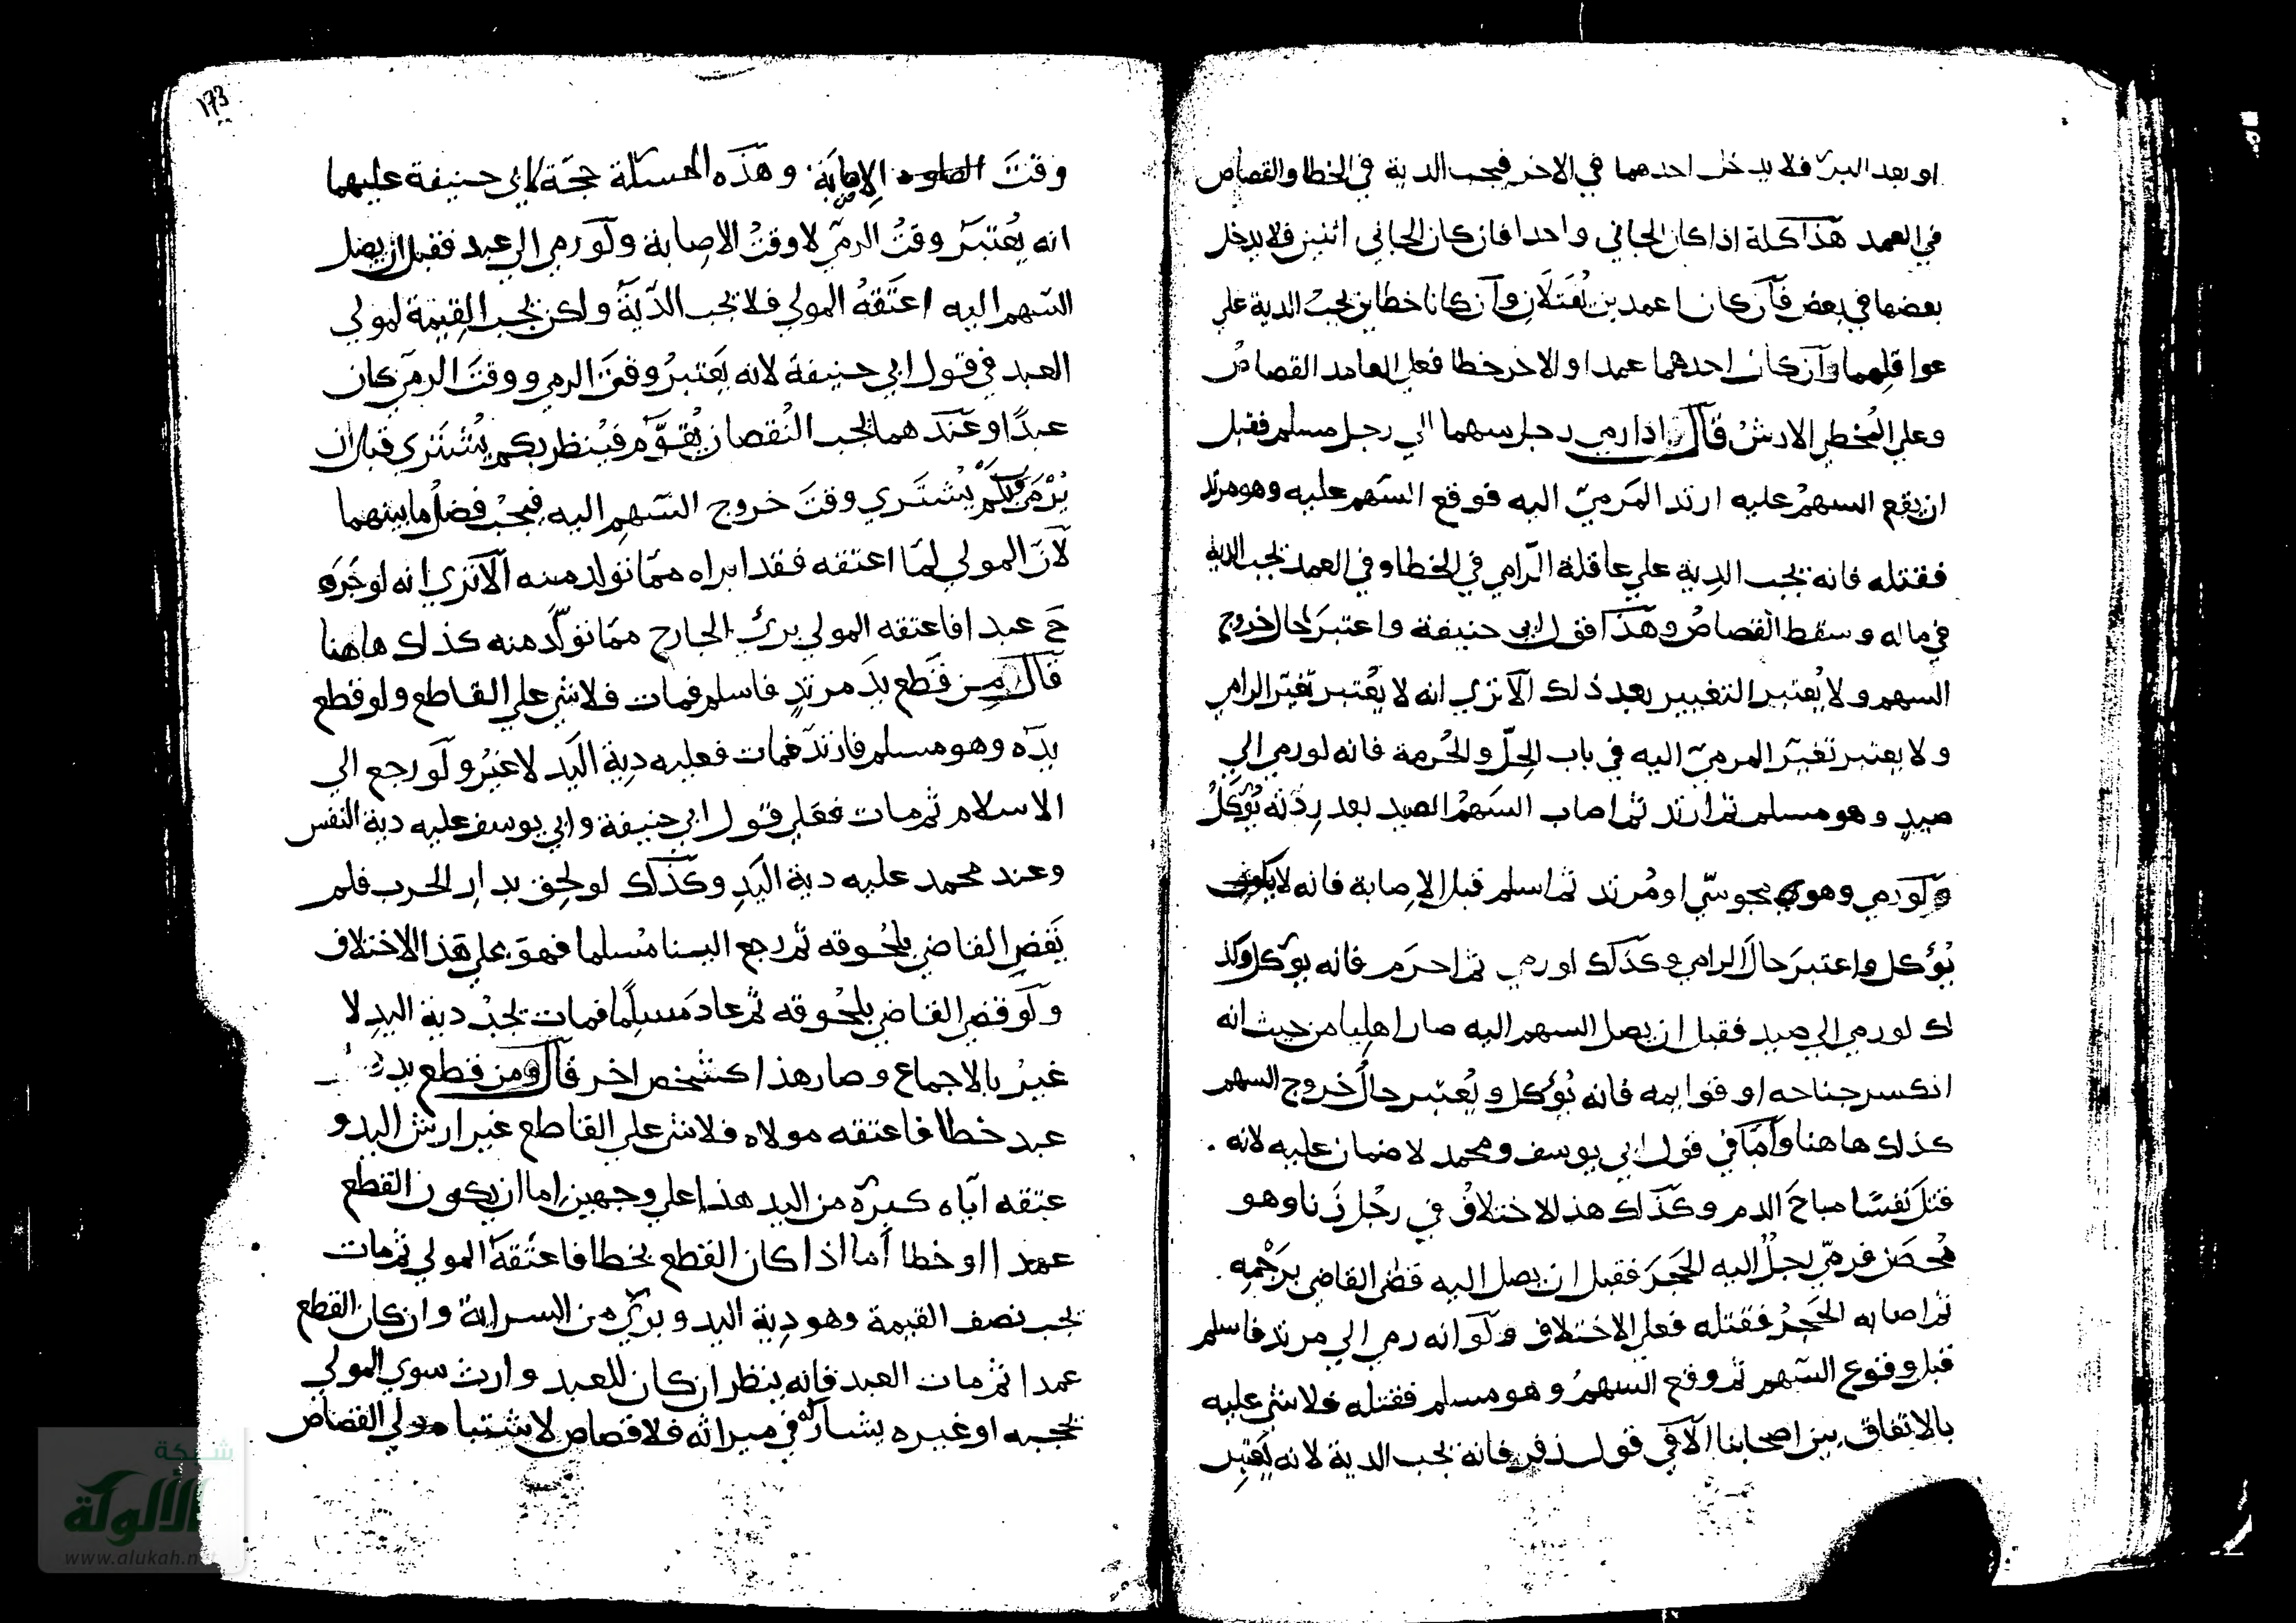 او بعد البرء فلا يدخل احدهما في الاخر فيجب الدية في الخطا والقصاص
في العمد هذا كله اذا كان الجاني واحدا فان كان الجاني اثنين فلا يدخل
بعضها في بعض فان كان اعمدين يُقتلان وان كانا خطاين يجب الدية علي
عواقلهما وان كان احدهما عمدا والاخر خطا فعلي العامد القصاص
وعلي المخطي الارش قال اذا رمي رجل سهما الي رجل مسلم فقبل
ان يقع السهم عليه ارتد المرميّ اليه فوقع السهم عليه وهو مرتد
فقتله فانه يجب الدية علي عاقلة الرامي في الخطا وفي العمد يجب الدية
في ماله وسقط القصاص وهذا قول ابي حنيفة واعتبر حال خروج
السهم ولا يُعتبر التغيير بعد ذلك الا تري انه لا يُعتبر تغيّر الرامي
ولا يعتبر تغيّر المرميّ اليه في باب الحِلّ والحُرمة فانه لو رمي الي
صيد وهو مسلم ثم ارتد ثم اصاب السهم الصيد بعد ردّته يُؤكل
ولو رمي وهو مجوسّي او مُرتد ثم اسلم قبل الاصابة فانه لا
يُؤكل واعتبر حال الرامي وكذلك لو رمي ثم احرم فانه يؤكل وكذ
لك لو رمي الي صيد فقبل ان يصل السهم اليه صار اهليا من حيث انه
انكسر جناحه او قوايمه فانه يُؤكل ويُعتبر حال خروج السهم
كذلك هاهنا وامّا في قول ابي يوسف ومحمد لا ضمان عليه لانه .
قتل نفسًا مباح الدم وكذلك هذ الاختلاف في رجل زنا وهو
مُحصن فرميّ رجلٌ اليه الحجر فقبل ان يصل اليه قضي القاضي برجمه
ثم اصابه الحجر فقتله فعلي الاختلاف ولو انه رمي الي مرتد فاسلم
قبل وقوع السهم ثم وقع السهم وهو مسلم فقتله فلا شي عليه
بالاتفاق بين اصحابنا الا في قول زفر فانه يجب الدية لانه يَعتبر
١٧٣
وقت الاصابة وهذه المسئلة حجّة لابي حنيفة عليهما
انه يُعتبر وقتُ الرميّ لا وقتُ الاصابة ولو رمي الي عبد فقبل ان يصل
السهم اليه اعتقهُ المولي فلا يجب الدّية ولكن يجب القيمة لمولي
العبد في قول ابي حنيفة لانه يَعتبرُ وقت الرمي ووقت الرمي كان
عبدًا وعندهما يجب النقصان يُقوّم فيُنظر بكم يُشتري قبل ان
يُرمَي وبكم يُشتَري وقتَ خروج السهم اليه فيجب فضلُ ما بينهما
لانّ المولي لمّا اعتقه فقد ابراه ممّا تولد منه الا تري انه لو جُر
ح عبدا فاعتقه المولي برئ الجارح ممّا تولّد منه كذلك هاهنا
قال من قَطع يدَ مرتدٍ فاسلم فمات فلا شي علي القاطع ولو قطع
يدَه وهو مسلم فارتدّ فمات فعليه دية اليَد لا غيرُ ولو رجع الي
الاسلام ثم مات فعلي قول ابي حنيفة وابي يوسف عليه دية النفس
وعند محمد عليه دية اليَدِ وكذلك لو لحق بدار الحرب فلم
يَقض القاضي بلحُوقه ثم رجع الينا مُسلما فهو علي هذا الاختلاف
ولو قضي القاضي بلحُوقه ثم عاد مُسلِمًا فمات يجبُ دية اليدِ لا
غيرُ بالاجماع وصار هذا كشخص اخر قال ومن قطع يد
عبد خطا فاعتقه مولاه فلا شي علي القاطع غير ارش اليد و
عتقه ايّاه كبرئه من اليد هذا علي وجهين اما ان يكون القطع
عمدا او خطا أما اذا كان القطع بخطا فاعتقهُ المولي ثم مات
يجب نصف القيمة وهو دِية اليد وبرئ من السراية وان كان القطع
عمدا ثم مات العبد فانه ينظر ان كان للعبد وارث سوي المولي
يحجبه او غيره يشاركه في ميراثه فلا قصاص لاشتباه ولي القصاص
شبكة
الألوكة
www.alukah.net